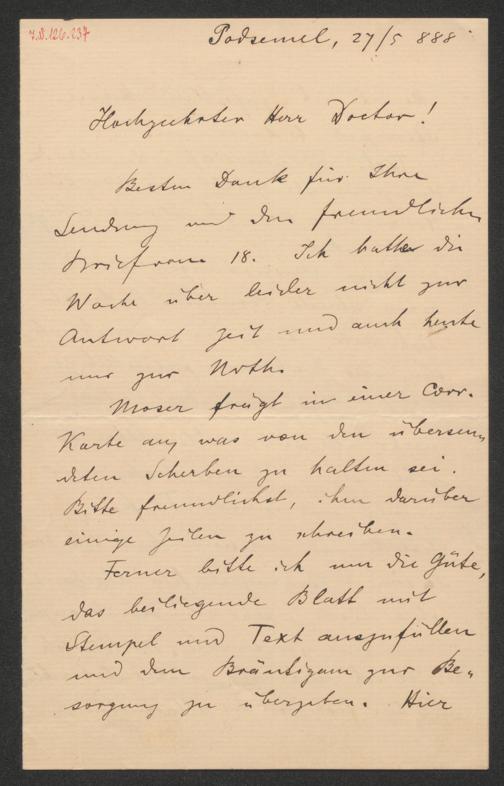 7.N.126.237
Podsemel, 27/5 888
Hochgeehrter Herr Doctor!
Besten Dank für Ihre
Sendung und den freundlichen
Brief vom 18. Ich hatte die
Woche über leider nicht zur
Antwort Zeit und auch heute
nur zur Noth.
Moser frägt in einer Corr.
Karte an, was von den übersen
deten Scherben zu halten sei.
Bitte freundlichst, ihm darüber
einige Zeilen zu schreiben.
Ferner bitte ich um die Güte,
das beiliegende Blatt mit
Stempel und Text auszufüllen
und dem Bräutigam zur Be„
sorgung zu übergeben. Hier